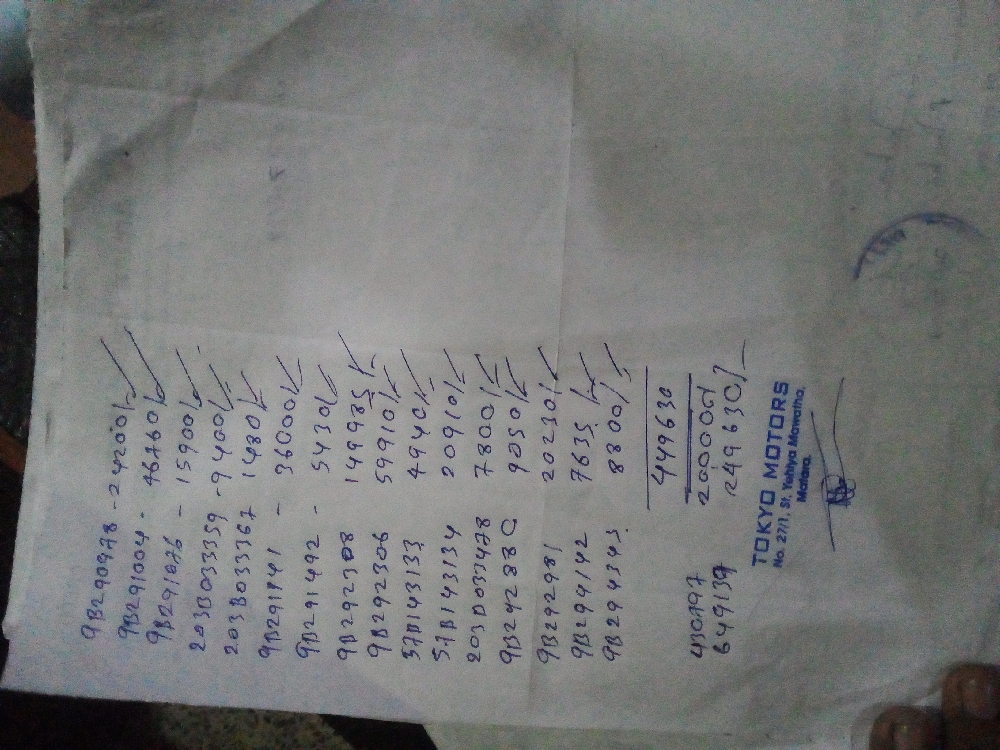 9B290978 - 24200/-
9B291004 - 46760/-
9B291076 - 15900/-
203B033359 - 9400/-
203B033367 1480/-
9B291141 - 36000/-
9B291492 - 5430/-
9B292308 149985/-
9B292306 59910/-
57B143133 4940/-
57B143134 20910/-
203B033478 7800/-
9B292880 9050/-
9B292981 20230/-
9B294142 7635/-
9B294343 8800/-
449630
430797 200000/-
649139 249630/-
TOKYO MOTORS
No. 27/1, St. Yehiya Mawatha,
Matara.